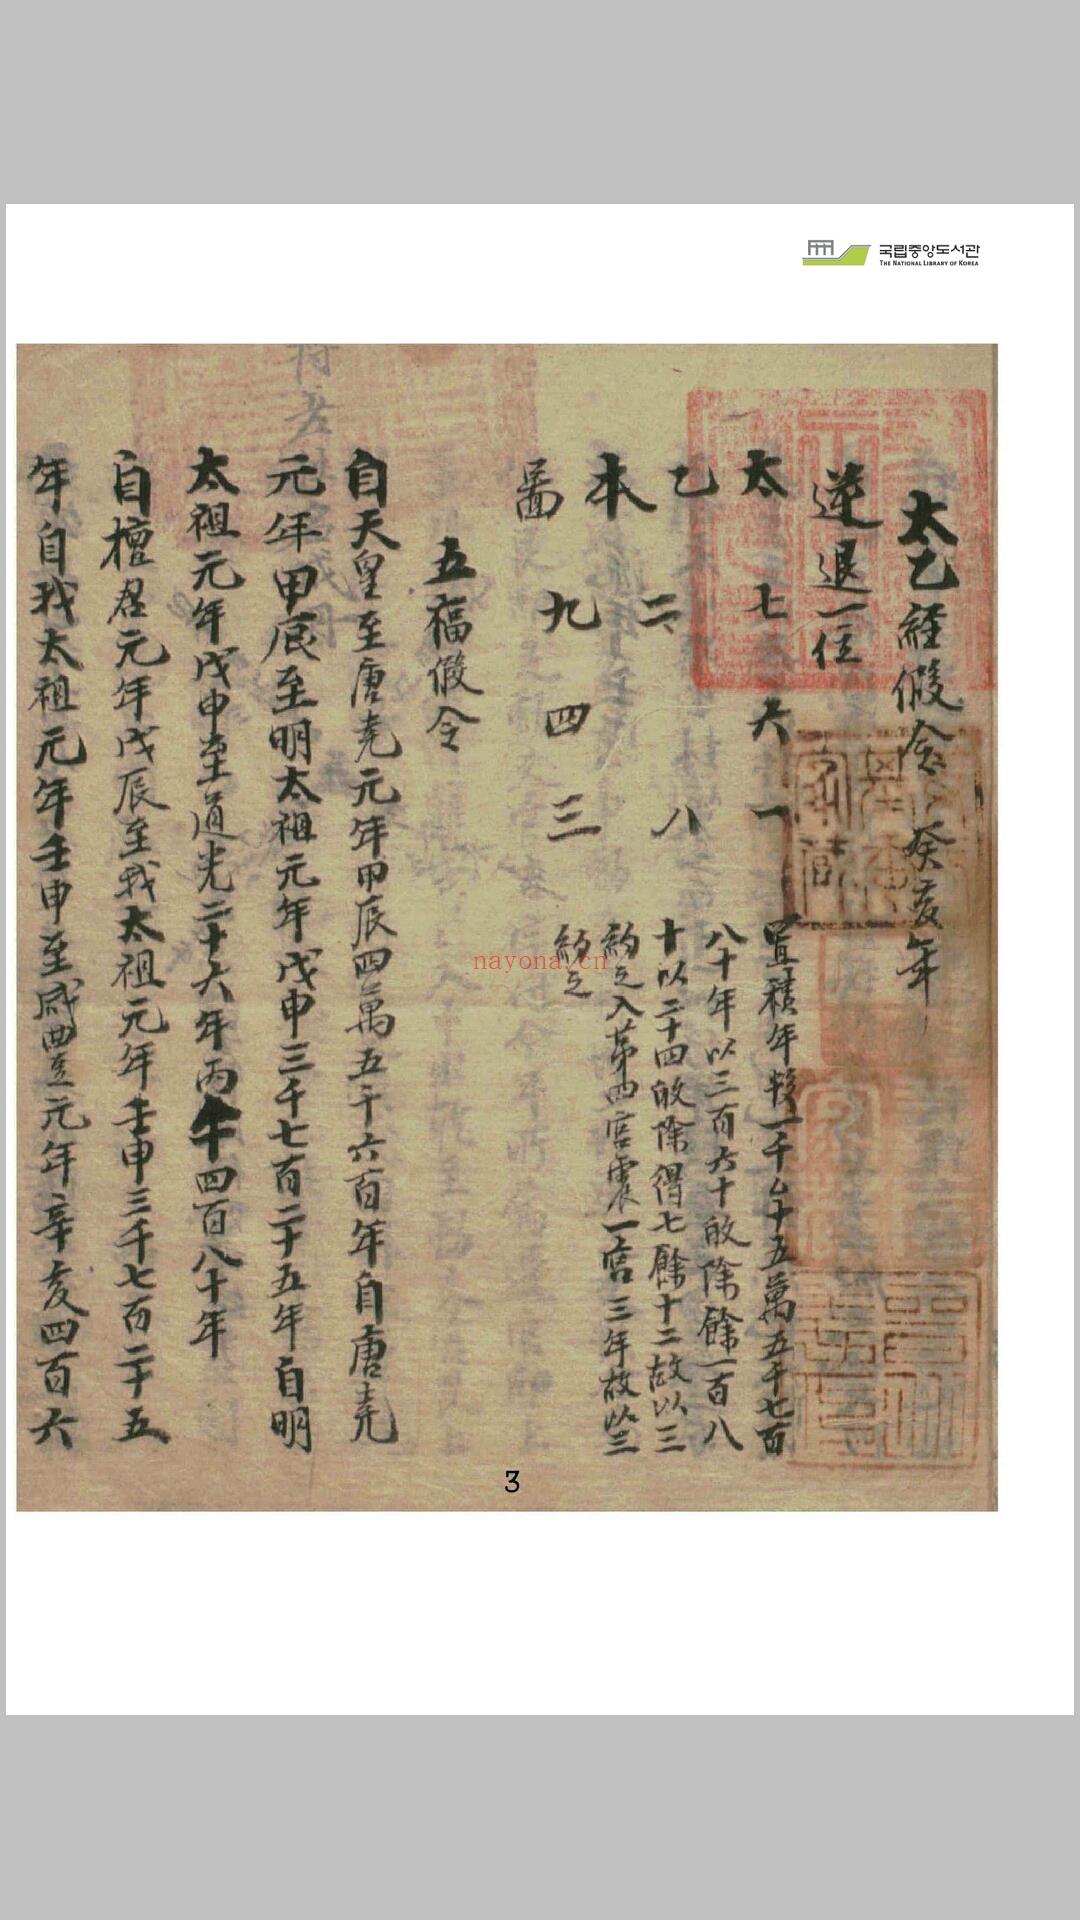 국립중앙도서관
THE NATIONAL LIBRARY OF KOREA
太乙經假令 癸亥年
逆退一位
太 七 六 一
乙 二 八
本
啚 九 四 三
置積年數一千五萬五千七百
八十年以三百六十除餘一百八
十以二十四除得七餘十二故以三
約之入第四宮震一宮三年故以三
約之
五福假令
自天皇至唐堯元年甲辰四萬五千六百年自唐堯
元年甲辰至明太祖元年戊申三千七百二十五年自明
太祖元年戊申至道光二十六年丙午四百八十年
自檀君元年戊辰至我太祖元年壬申三千七百二十五
年自我太祖元年壬申至咸豊元年辛亥四百六
nayona.cn
3